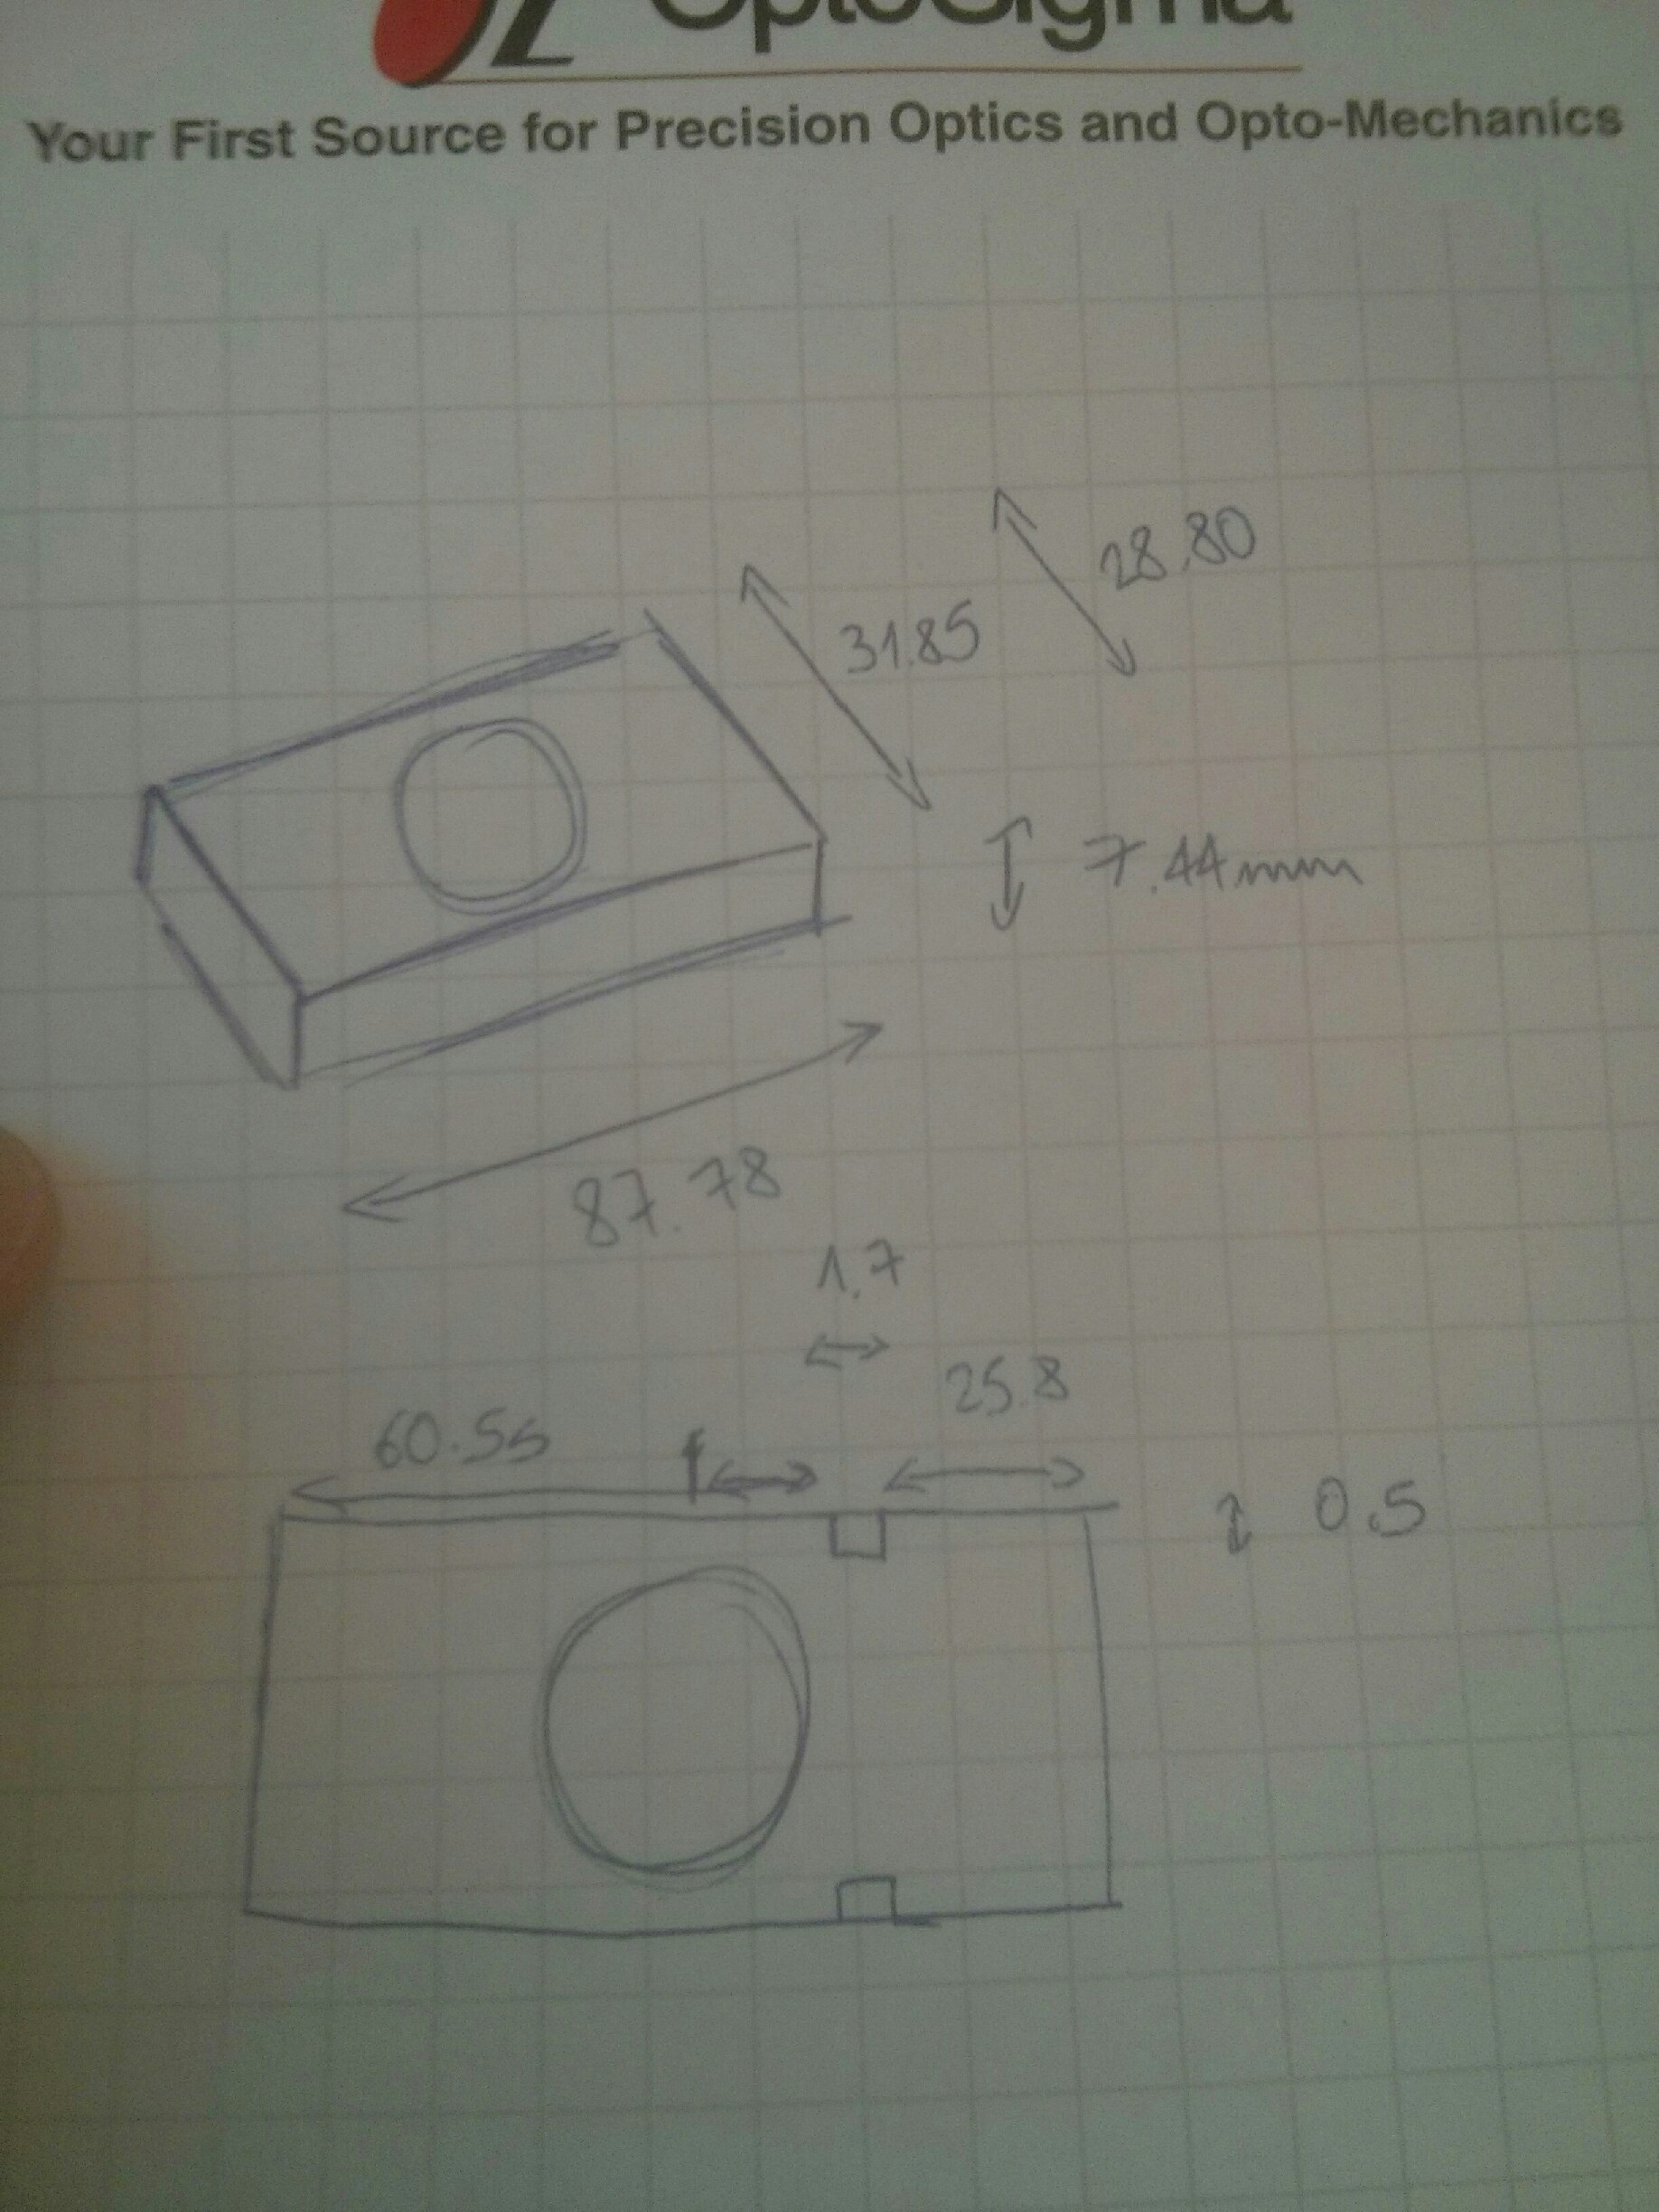 OptoSigma
Your First Source for Precision Optics and Opto-Mechanics
28.80
31.85
7.44mm
87.78
1.7
25.8
60.55
0.5